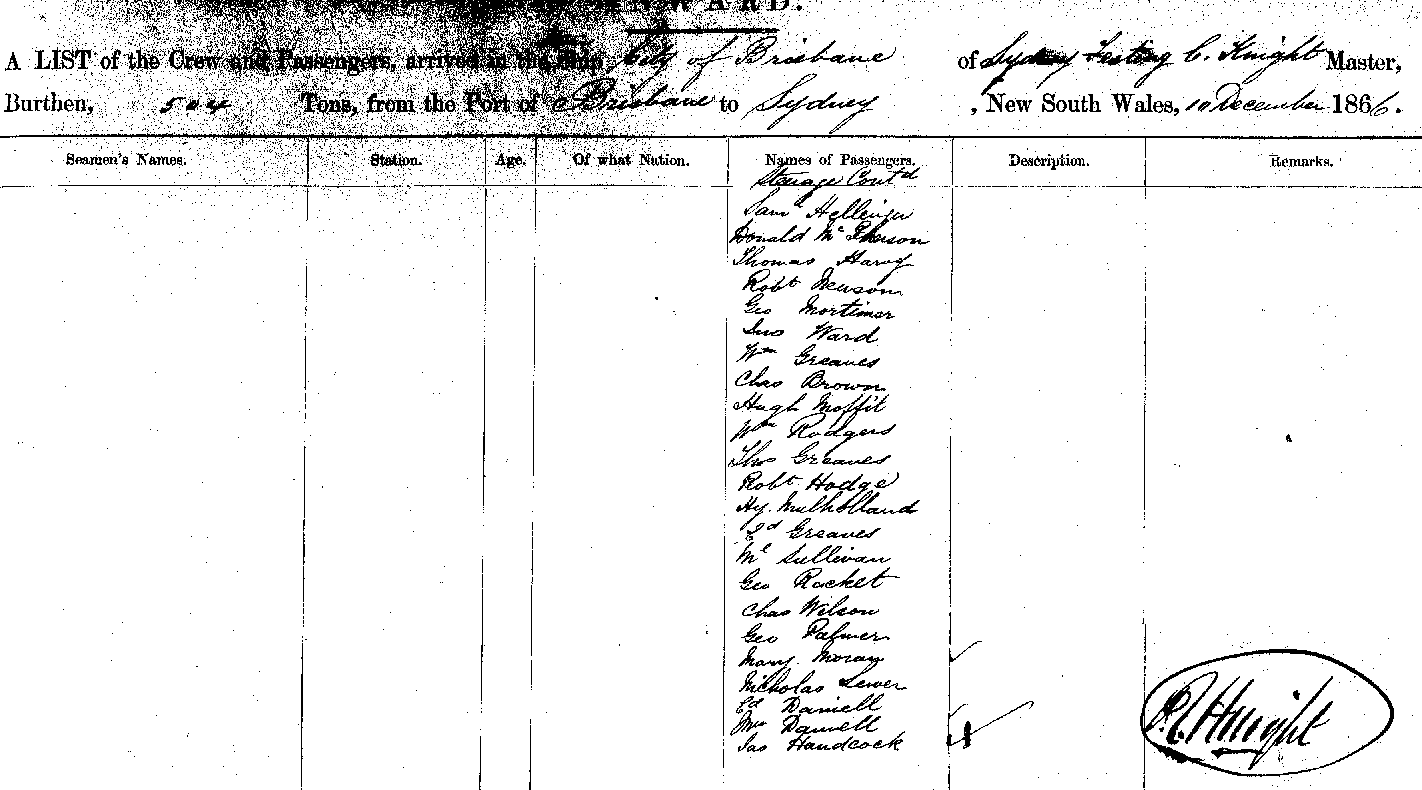 NWARD.
A LIST of the Crew and Passengers, arrived in the Ship City of Brisbane of Sydney C. Knight Master,
Burthen, 504 Tons, from the Port of Brisbane to Sydney , New South Wales, 10 December 1866.
Seamen's Names. Station. Age. Of what Nation. Names of Passengers. Description. Remarks.
Steerage Contd
Saml Hellinger
Donald Mc Pherson
Thomas Harvy
Robt Newson
Geo Mortimer
Jno Ward
Wm Greaves
Chas Brown
Hugh Moffit
Wm Rodgers
Thos Greaves
Robt Hodge
Hy. Mulholland
Ed Greaves
Ml Sullivan
Geo Racket
Chas Wilson
Geo Palmer
Mary Moran
Nicholas Lewer
Ed Daniell
Mrs Daniell
Jas Handcock
4
Knight